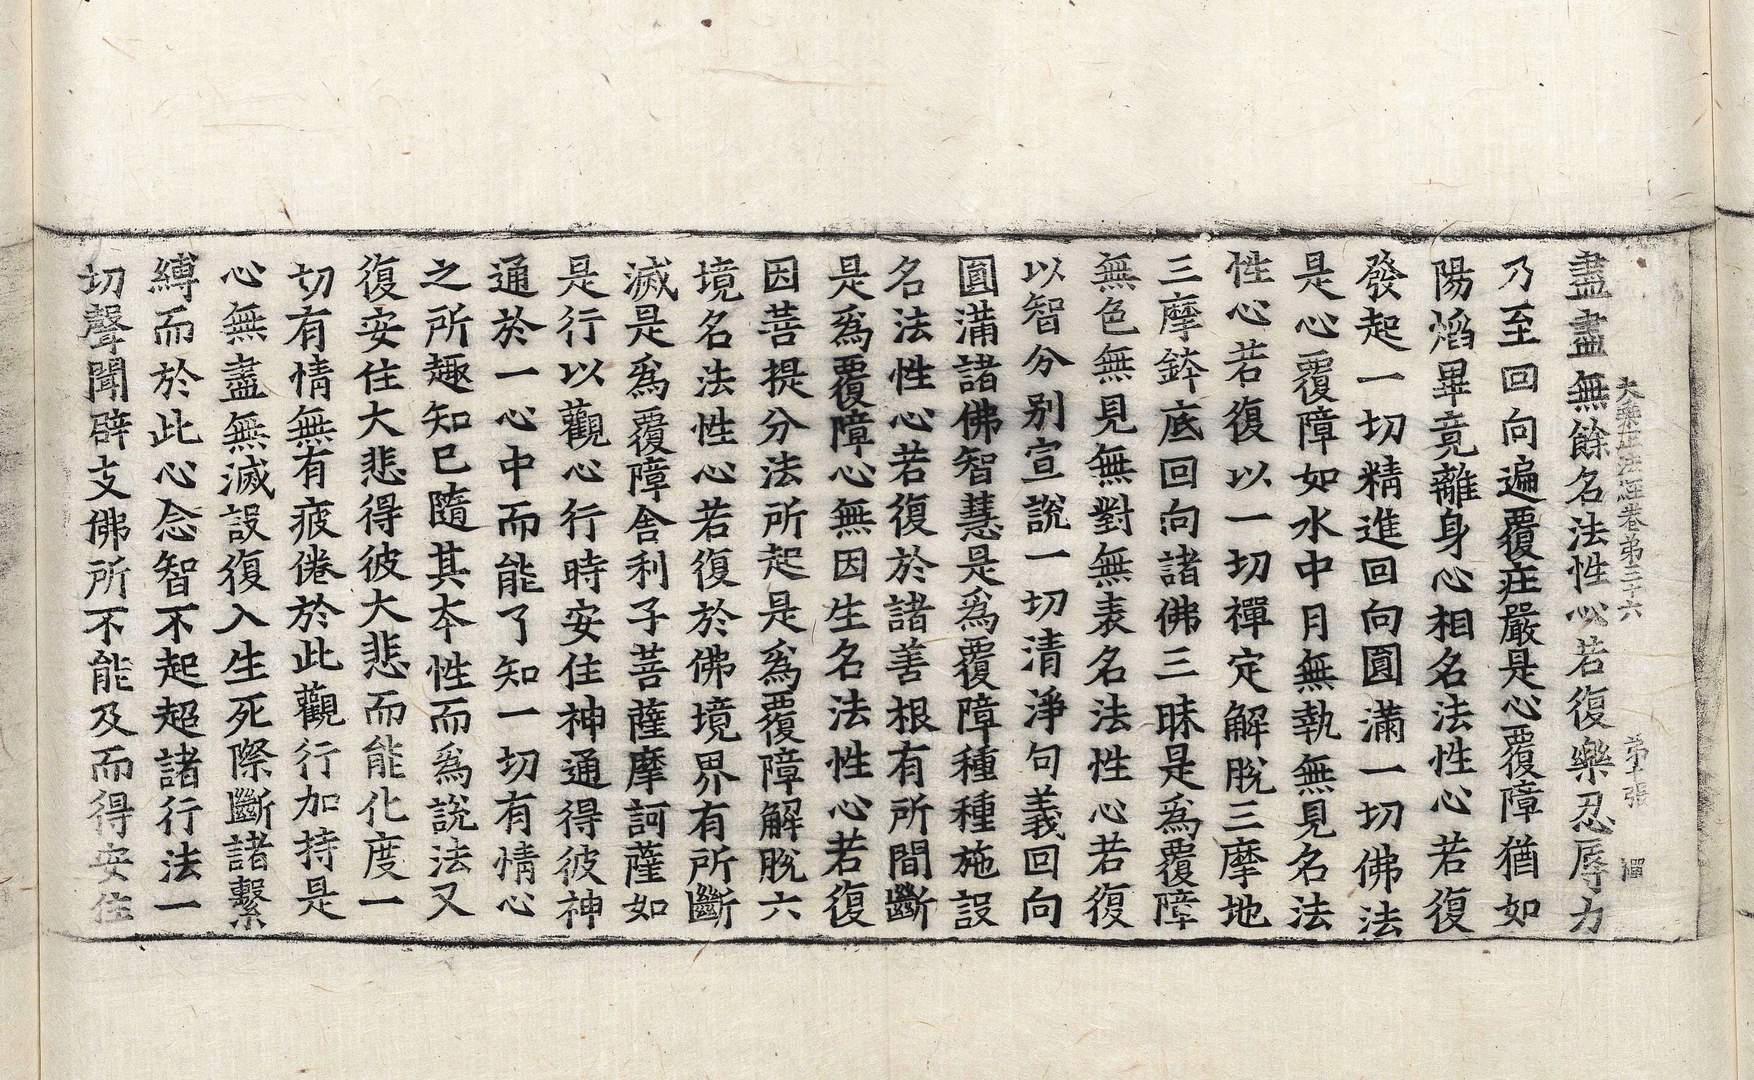 大乘正法經卷第三十六 第十張 禪
盡盡無餘名法性心若復樂忍辱力
乃至回向遍覆庄嚴是心覆障猶如
陽焰畢竟離身心相名法性心若復
發起一切精進回向圓滿一切佛法
是心覆障如水中月無執無見名法
性心若復以一切禪定解脫三摩地
三摩鉢底回向諸佛三昧是爲覆障
無色無見無對無表名法性心若復
以智分别宣說一切清淨句義回向
圓滿諸佛智慧是爲覆障種種施設
名法性心若復於諸善根有所間斷
是爲覆障心無因生名法性心若復
因菩提分法所起是爲覆障解脫六
境名法性心若復於佛境界有所斷
滅是爲覆障舍利子菩薩摩訶薩如
是行以觀心行時安住神通得彼神
通於一心中而能了知一切有情心
之所趣知已隨其夲性而爲說法又
復安住大悲得彼大悲而能化度一
切有情無有疲倦於此觀行加持是
心無盡無滅設復入生死際斷諸繫
縛而於此心念智不起超諸行法一
切聲聞辟支佛所不能及而得安住